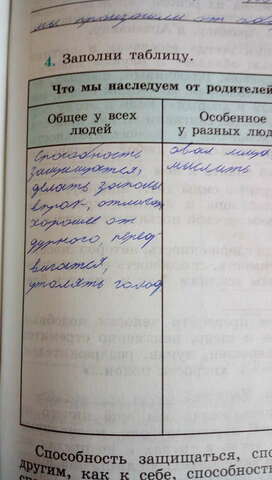 мы произошли от
4. Заполни таблицу.
Что мы наследуем от родителей
Общее у всех людей
Особенное у разных люд
способность защищаться,
делать запасы
впрок, отличать
хорошее от
дурного, перед
вигатся,
утолять голод
овал лица
мыслить
Способность защищаться, спо
другим, как к себе, способность